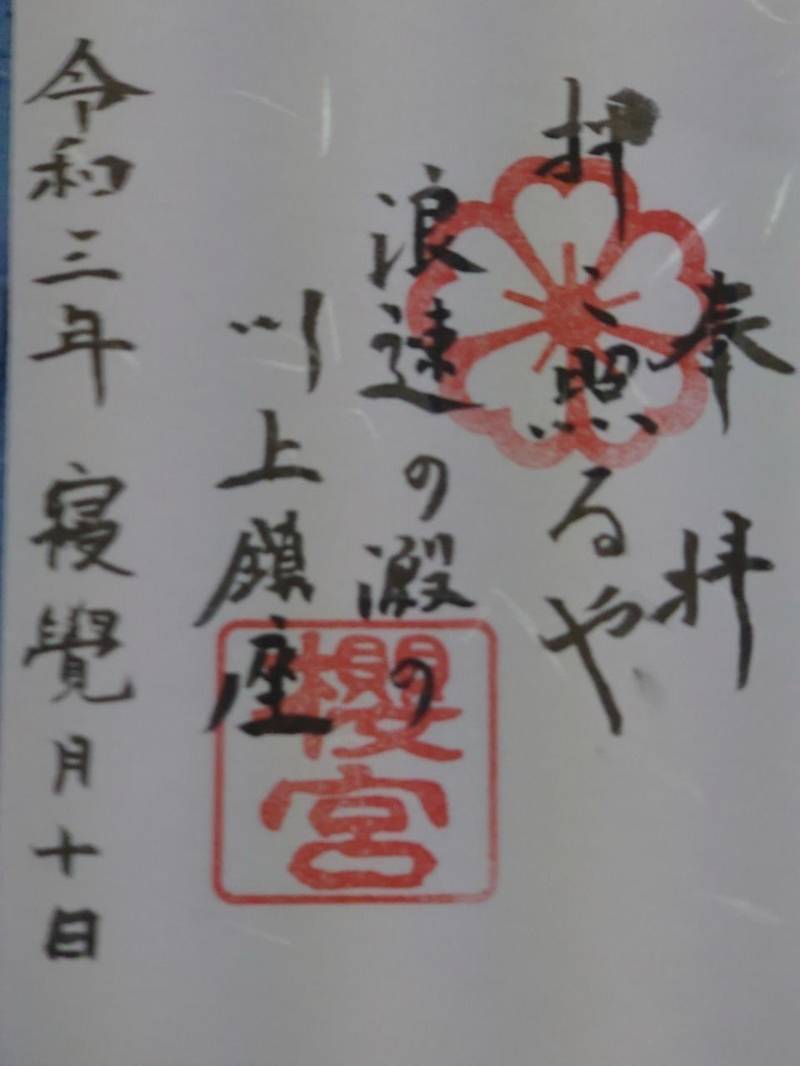 奉拝
押〻照るや
浪速の澱の
川上鎮座
櫻宮
令和三年 寝覺月十日